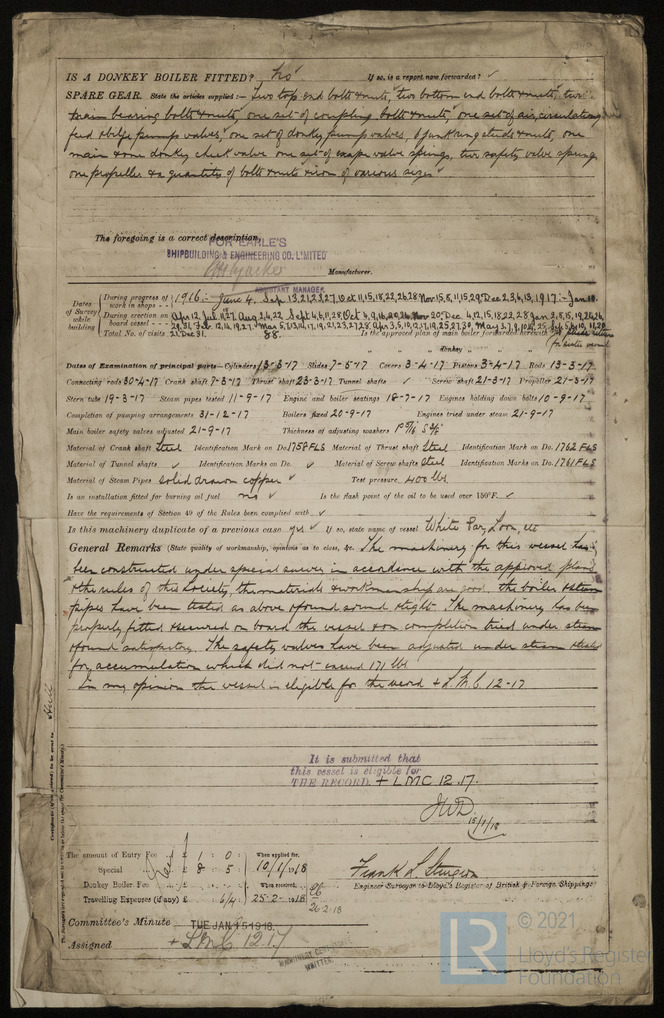 IS A DONKEY BOILER FITTED? No If so, is a report now forwarded?
SPARE GEAR. State the articles supplied:— Two top end bolts & nuts, two bottom end bolts & nuts, two
main bearing bolts & nuts, one set of coupling bolts & nuts, one set of air, circulating
feed & bilge pump valves, one set of donkey pump valves, junk ring studs & nuts, one
main & one donkey check valve one set of escape valve springs, two safety valve springs
one propeller & a quantity of bolts & nuts & iron of various sizes
The foregoing is a correct description,
FOR EARLE'S
SHIPBUILDING & ENGINEERING CO. LIMITED
Manufacturer.
ASSISTANT MANAGER
Dates of Survey while building
During progress of work in shops -- 1916:- June 4. Sep. 13,21,23,27, Oct 11,15,18,22,26,28 Nov 15,8,11,15,29, Dec 2,3,6,13, 1917:- Jan 10.
During erection on board vessel --- Apr 12, Jul 11,27, Aug 2,4,22
Total No. of visits 88. Is the approved plan of main boiler forwarded herewith
" " " donkey " " "
Dates of Examination of principal parts—Cylinders 13-3-17 Slides 7-5-17 Covers 3-4-17 Pistons 3-4-17 Rods 13-3-17
Connecting rods 30-4-17 Crank shaft 7-3-17 Thrust shaft 23-3-17 Tunnel shafts ✓ Screw shaft 21-3-17 Propeller 21-3-17
Stern tube 19-3-17 Steam pipes tested 11-9-17 Engine and boiler seatings 18-7-17 Engines holding down bolts 10-9-17
Completion of pumping arrangements 31-12-17 Boilers fixed 20-9-17 Engines tried under steam 21-9-17
Main boiler safety valves adjusted 21-9-17 Thickness of adjusting washers
Material of Crank shaft Steel Identification Mark on Do. 1758FLS Material of Thrust shaft Steel Identification Mark on Do. 1762 FLS
Material of Tunnel shafts ✓ Identification Marks on Do. ✓ Material of Screw shafts Steel Identification Marks on Do. 1761 FLS
Material of Steam Pipes Solid drawn copper ✓ Test pressure 400 lbs
Is an installation fitted for burning oil fuel no ✓ Is the flash point of the oil to be used over 150°F. ✓
Have the requirements of Section 49 of the Rules been complied with ✓
Is this machinery duplicate of a previous case yes ✓ If so, state name of vessel White Ear, Loon, etc
General Remarks (State quality of workmanship, opinions as to class, &c. The machinery for this vessel has
been constructed under special survey in accordance with the approved plans
& the rules of this Society, the materials & workmanship are good, the boiler & steam
pipes have been tested as above & found sound & tight. The machinery has been
properly fitted & secured on board the vessel & on completion tried under steam
& found satisfactory. The safety valves have been adjusted under steam & tested
for accumulation which did not exceed 171 lbs
In my opinion the vessel is eligible for the record + L.M.C. 12-17
It is submitted that
this vessel is eligible for
THE RECORD. + LMC 12.17.
JWD
15/1/18
The amount of Entry Fee £ 1 : 0 : When applied for,
Special £ 8 : 5 : 10/1/1918
Donkey Boiler Fee £ : : When received,
Travelling Expenses (if any) £ : 6/4 : 25-2-1918
26-2-18
Frank L Sturgeon
Engineer Surveyor to Lloyd's Register of British & Foreign Shipping.
Committee's Minute TUE. JAN. 15 1918
Assigned + L.M.C. 12.17
MACHINERY CERTIFICATE
WRITTEN
Hull
© 2021
LR
Lloyd's Register
Foundation